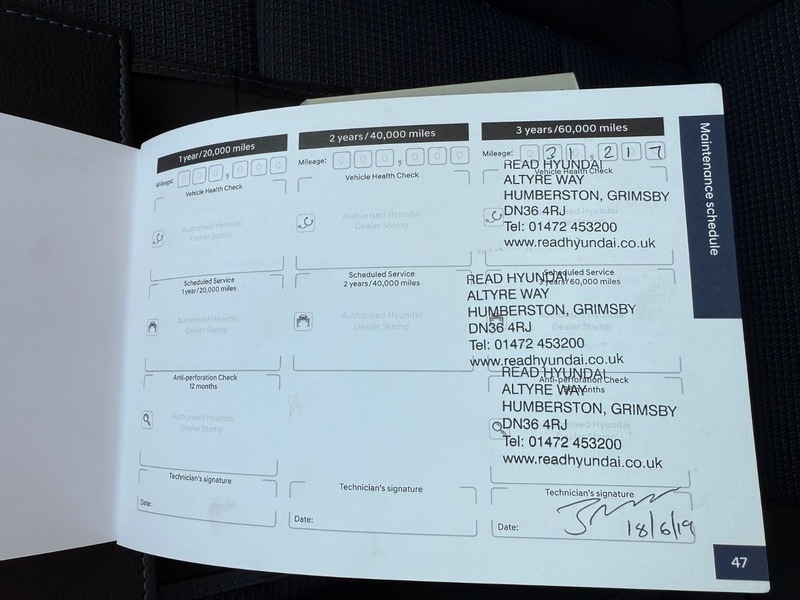 1 year/20,000 miles
Mileage: 0 0 0 , 0 0 0
Vehicle Health Check
Authorised Hyundai
Dealer Stamp
Scheduled Service
1 year/20,000 miles
Authorised Hyundai
Dealer Stamp
Anti-perforation Check
12 months
Authorised Hyundai
Dealer Stamp
Technician's signature
Date:
2 years/40,000 miles
Mileage: 0 0 0 , 0 0 0
Vehicle Health Check
Authorised Hyundai
Dealer Stamp
Scheduled Service
2 years/40,000 miles
Authorised Hyundai
Dealer Stamp
Technician's signature
Date:
3 years/60,000 miles
Mileage: 0 3 1 , 2 1 7
Vehicle Health Check
READ HYUNDAI
ALTYRE WAY
HUMBERSTON, GRIMSBY
DN36 4RJ
Tel: 01472 453200
www.readhyundai.co.uk
Scheduled Service
3 years/60,000 miles
READ HYUNDAI
ALTYRE WAY
HUMBERSTON, GRIMSBY
DN36 4RJ
Dealer Stamp
Tel: 01472 453200
www.readhyundai.co.uk
Anti-perforation Check
months
READ HYUNDAI
ALTYRE WAY
HUMBERSTON, GRIMSBY
DN36 4RJ
Hyundai
Tel: 01472 453200
www.readhyundai.co.uk
Technician's signature
Date: 18/6/19
Maintenance schedule
47